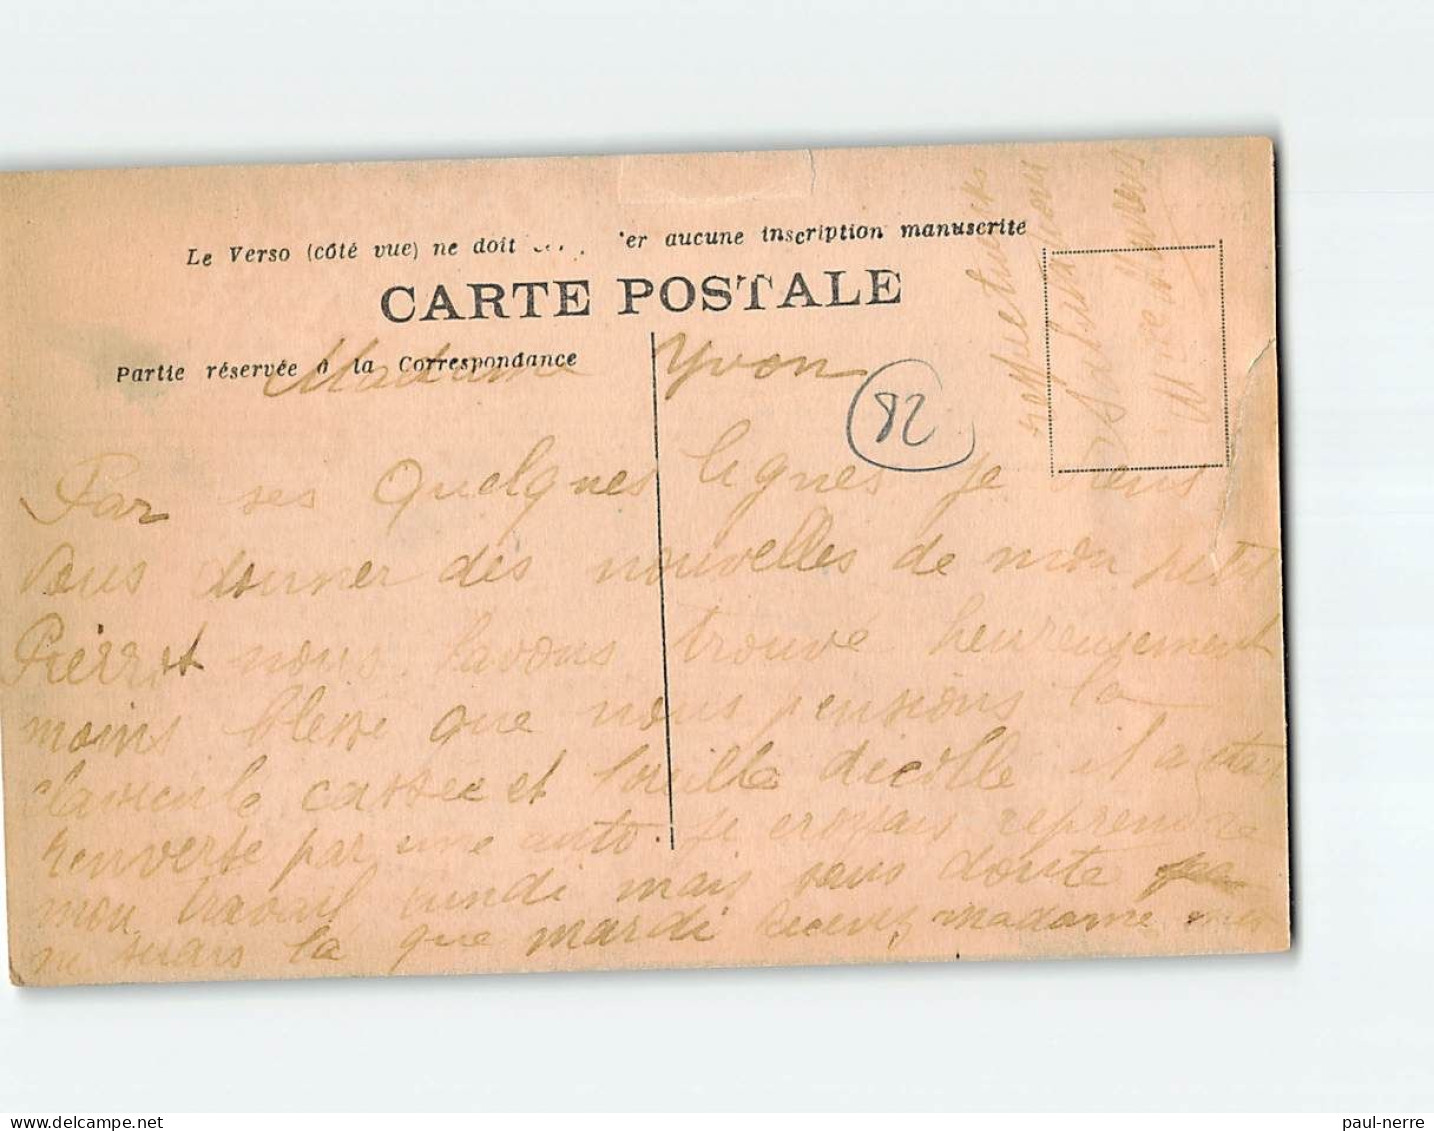 Le Verso (côté vue) ne doit er aucune inscription manuscrite
CARTE POSTALE
Partie réservée à la Correspondance
Madame Yvon
82
Par ses quelques lignes je viens
vous donner des nouvelles de mon petit
Pierrot nous lavons trouvé heureusement
moins blesse que nous pensions la
clavicule cassee et loreille dicolle il a etai
renverse par une auto. je croyais reprendre
mon travail lundi mais sans doute
ne serais la que mardi recevez madame mes
respectueuses
salutations
paul-nerre